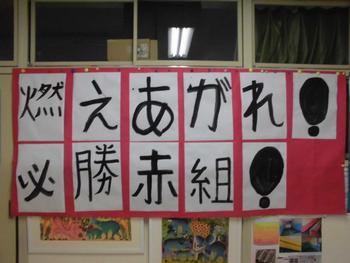 燃えあがれ!
必勝赤組!